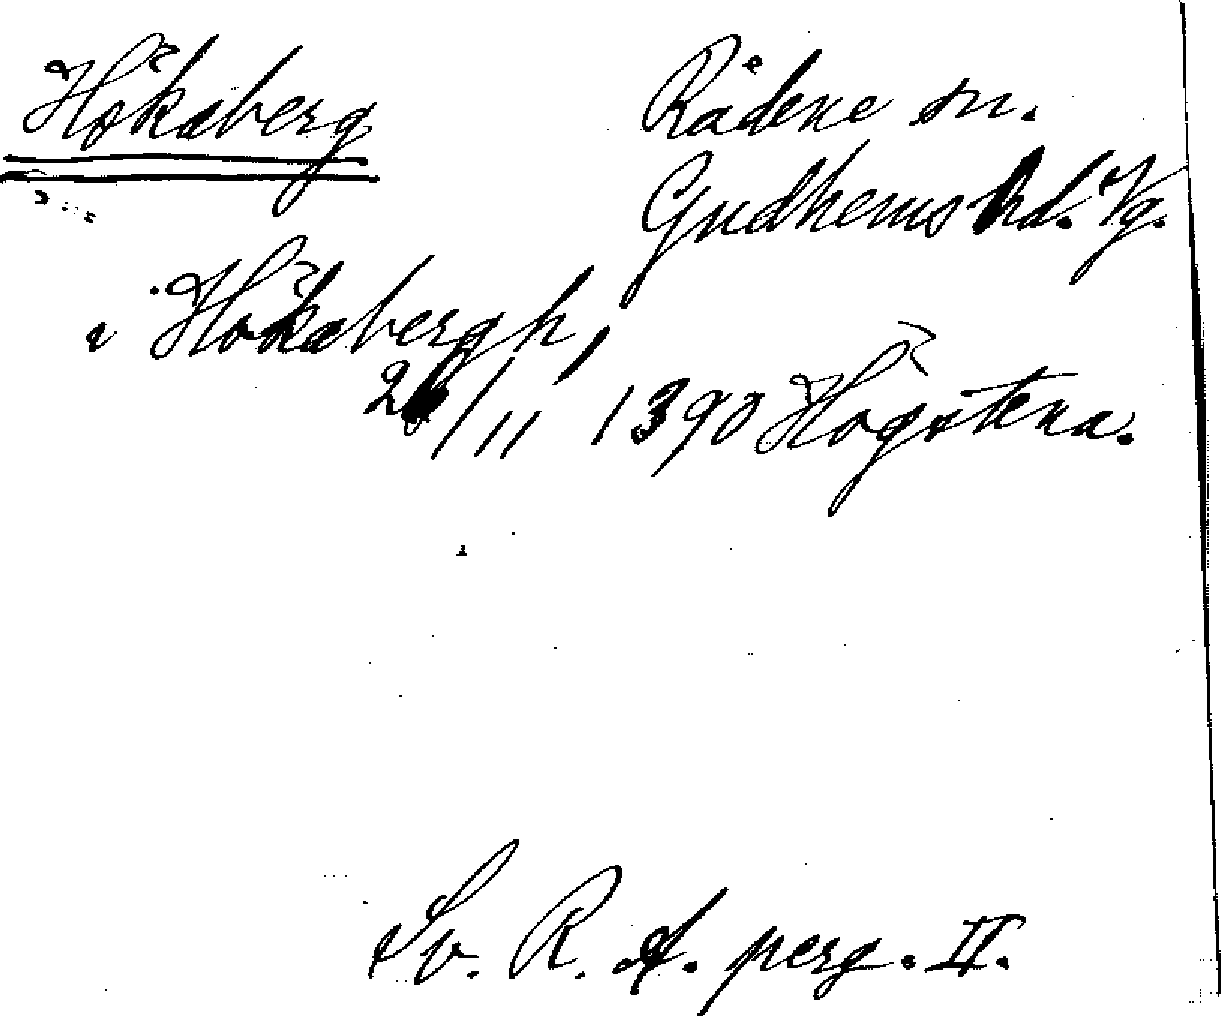 Hökaberg
Rådene sn.
Gudhems hd. Vg.
i Hökabergh,
26/11 1390 Högstena.
Sv. R. A. perg. II.